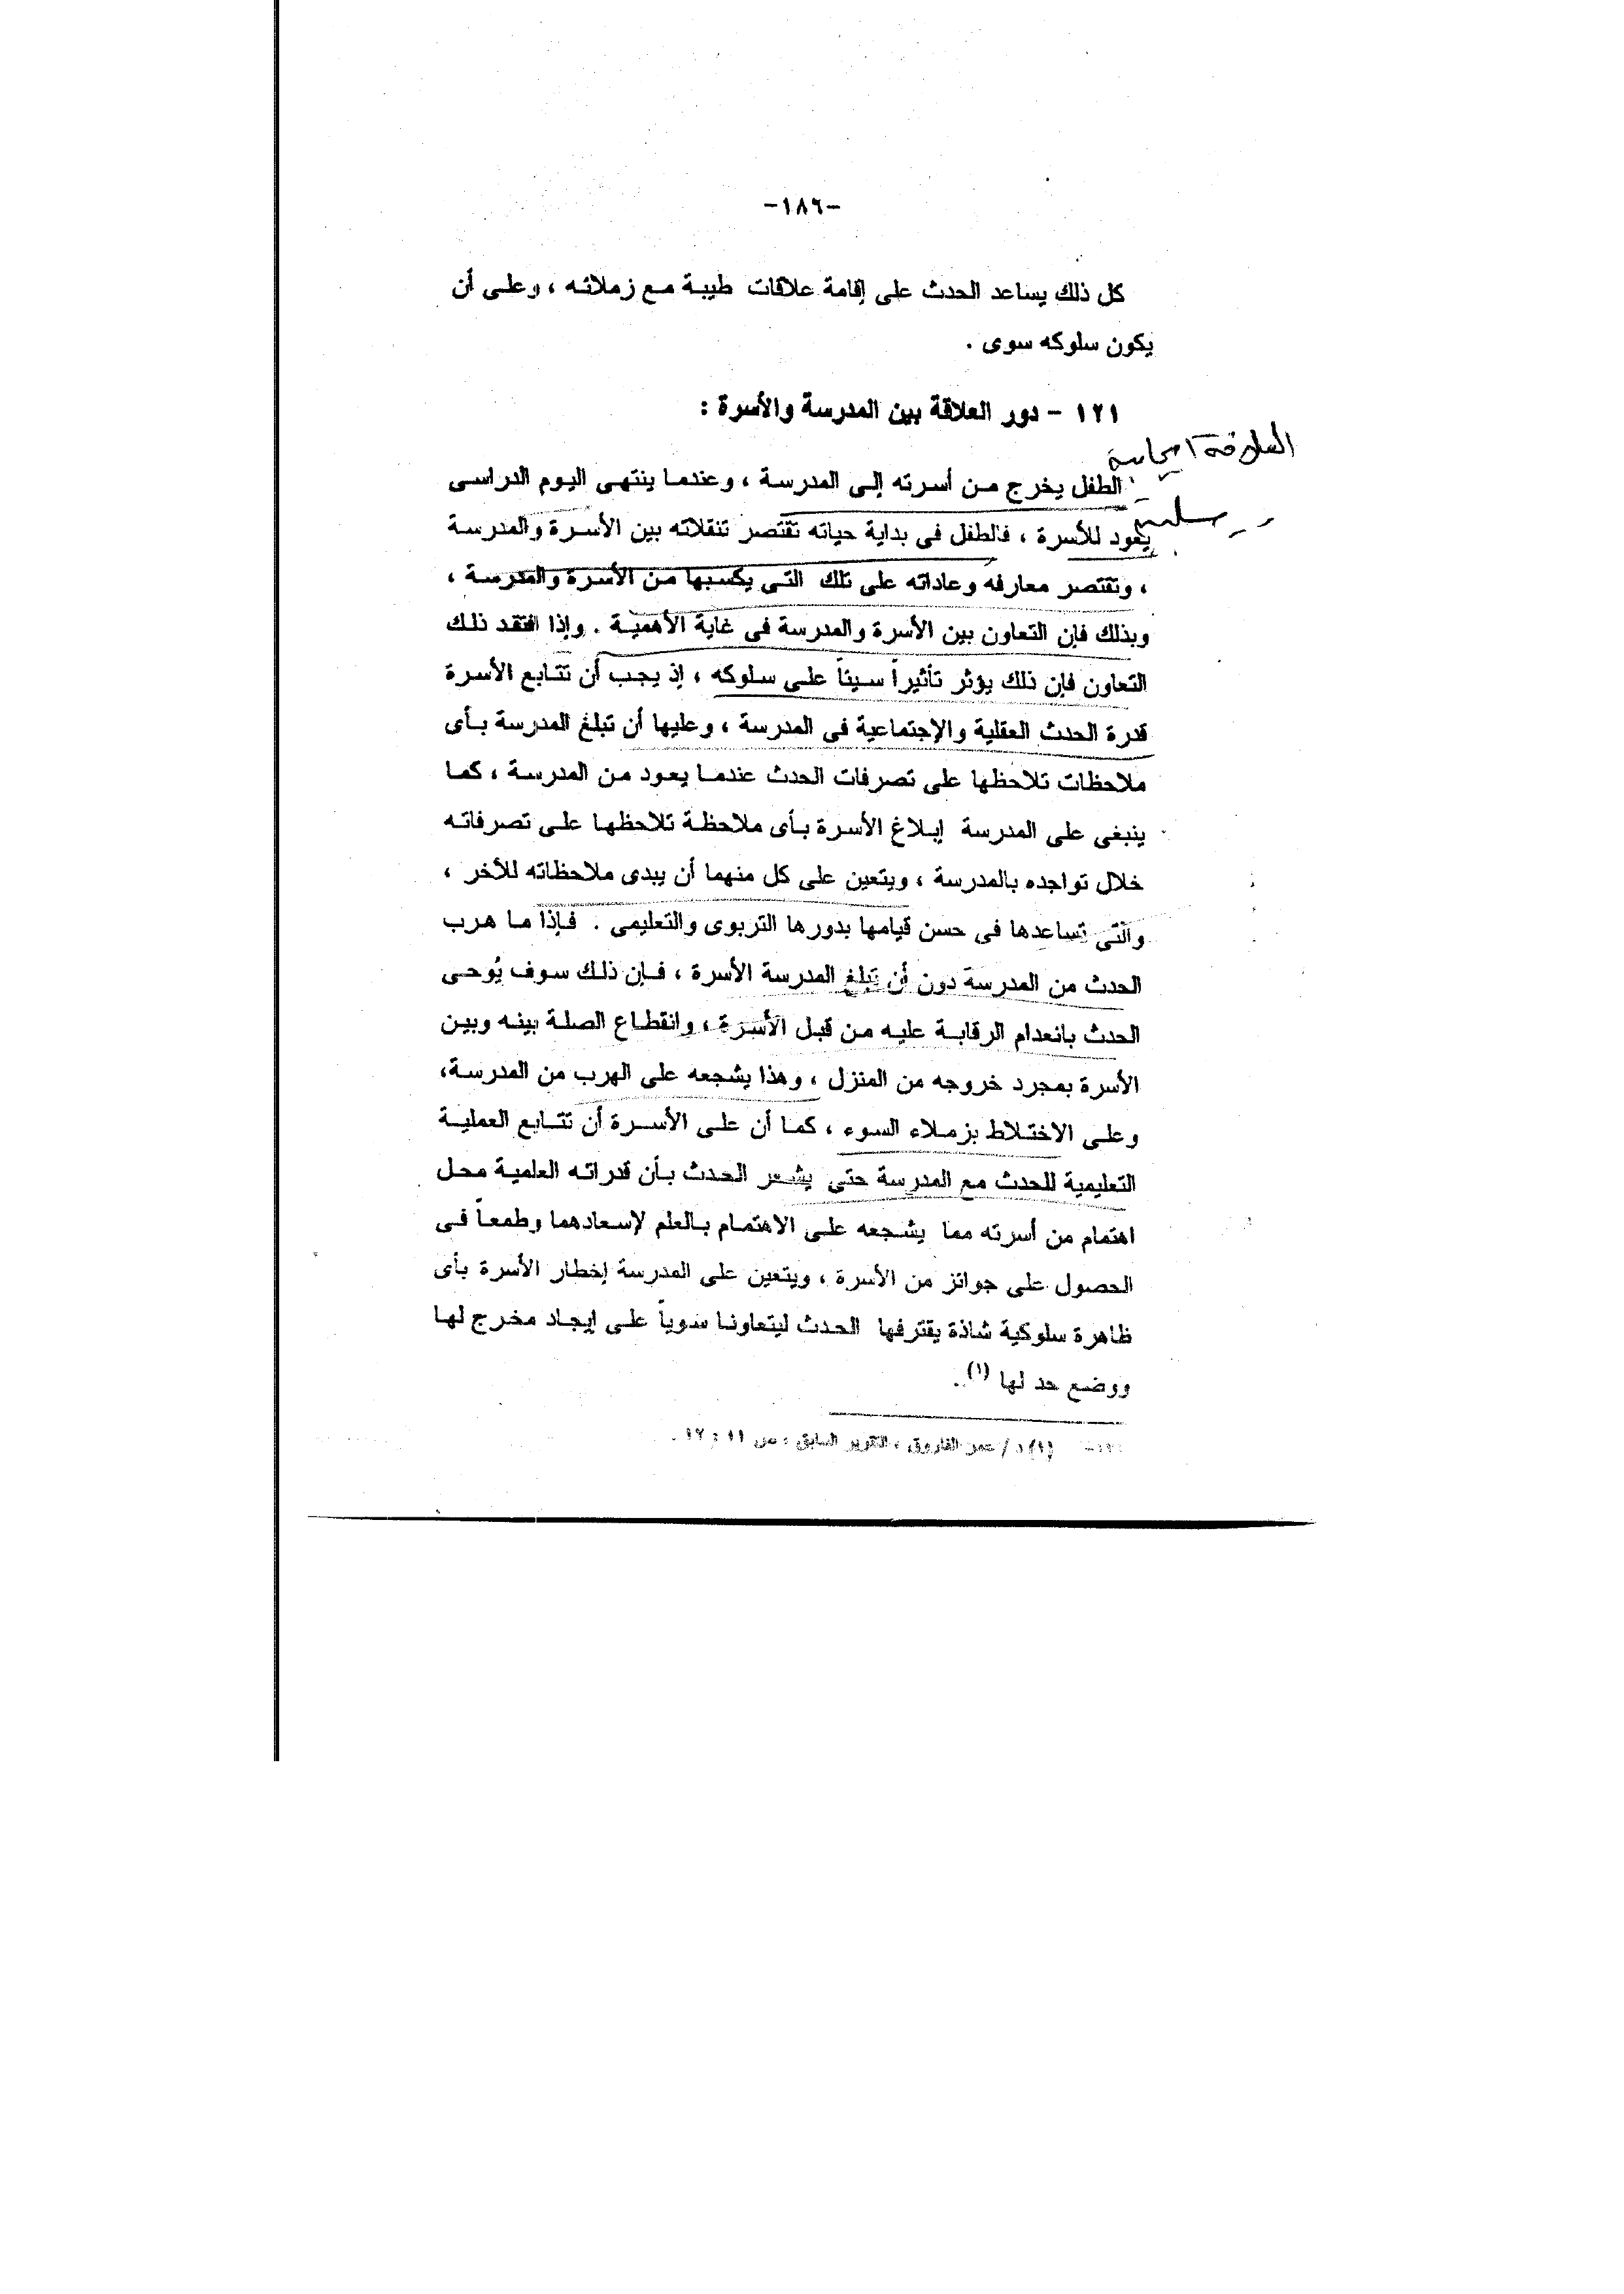 -١٨٦-
كل ذلك يساعد الحدث على إقامة علاقات طيبة مع زملائه ، وعلى أن
يكون سلوكه سوى .
١٢١ - دور العلاقة بين المدرسة والأسرة :
العلاقة ايجابية
الطفل يخرج من أسرته إلى المدرسة ، وعندما ينتهى اليوم الدراسى
سلبية
يعود للأسرة ، فالطفل فى بداية حياته تقتصر تنقلاته بين الأسرة والمدرسة
، وتقتصر معارفه وعاداته على تلك التى يكسبها من الأسرة والمدرسة ،
وبذلك فإن التعاون بين الأسرة والمدرسة فى غاية الأهمية . وإذا افتقد ذلك
التعاون فإن ذلك يؤثر تأثيراً سيئاً على سلوكه ، إذ يجب أن تتابع الأسرة
قدرة الحدث العقلية والإجتماعية فى المدرسة ، وعليها أن تبلغ المدرسة بأى
ملاحظات تلاحظها على تصرفات الحدث عندما يعود من المدرسة ، كما
ينبغى على المدرسة إبلاغ الأسرة بأى ملاحظة تلاحظها على تصرفاته
خلال تواجده بالمدرسة ، ويتعين على كل منهما أن يبدى ملاحظاته للأخر ،
والتى تساعدها فى حسن قيامها بدورها التربوى والتعليمى . فإذا ما هرب
الحدث من المدرسة دون أن تبلغ المدرسة الأسرة ، فإن ذلك سوف يُوحى
الحدث بانعدام الرقابة عليه من قبل الأسرة ، وانقطاع الصلة بينه وبين
الأسرة بمجرد خروجه من المنزل ، وهذا يشجعه على الهرب من المدرسة،
وعلى الاختلاط بزملاء السوء ، كما أن على الأسرة أن تتابع العملية
التعليمية للحدث مع المدرسة حتى يشعر الحدث بأن قدراته العلمية محل
اهتمام من أسرته مما يشجعه على الاهتمام بالعلم لإسعادهما وطمعاً فى
الحصول على جوائز من الأسرة ، ويتعين على المدرسة إخطار الأسرة بأى
ظاهرة سلوكية شاذة يقترفها الحدث ليتعاونا سوياً على إيجاد مخرج لها
ووضع حد لها (١).
(١) د/ عمر الفاروق ، التقرير السابق ، ص ١١ : ١٢ .